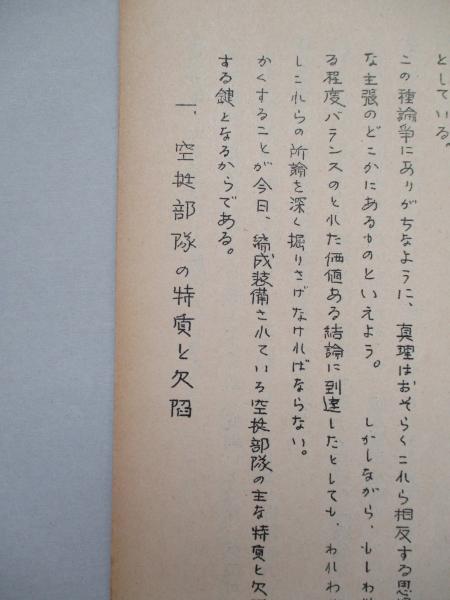 としている。
この種論争にありがちなように、真理はおそらくこれら相反する思
な主張のどこかにあるものといえよう。　しかしながら、もしわれ
る程度バランスのとれた価値ある結論に到達したとしても、われわ
しこれらの所論を深く掘りさげなければならない。
かくすることが今日、編成装備されている空挺部隊の主な特質と欠
する鍵となるからである。
一、空挺部隊の特質と欠陥